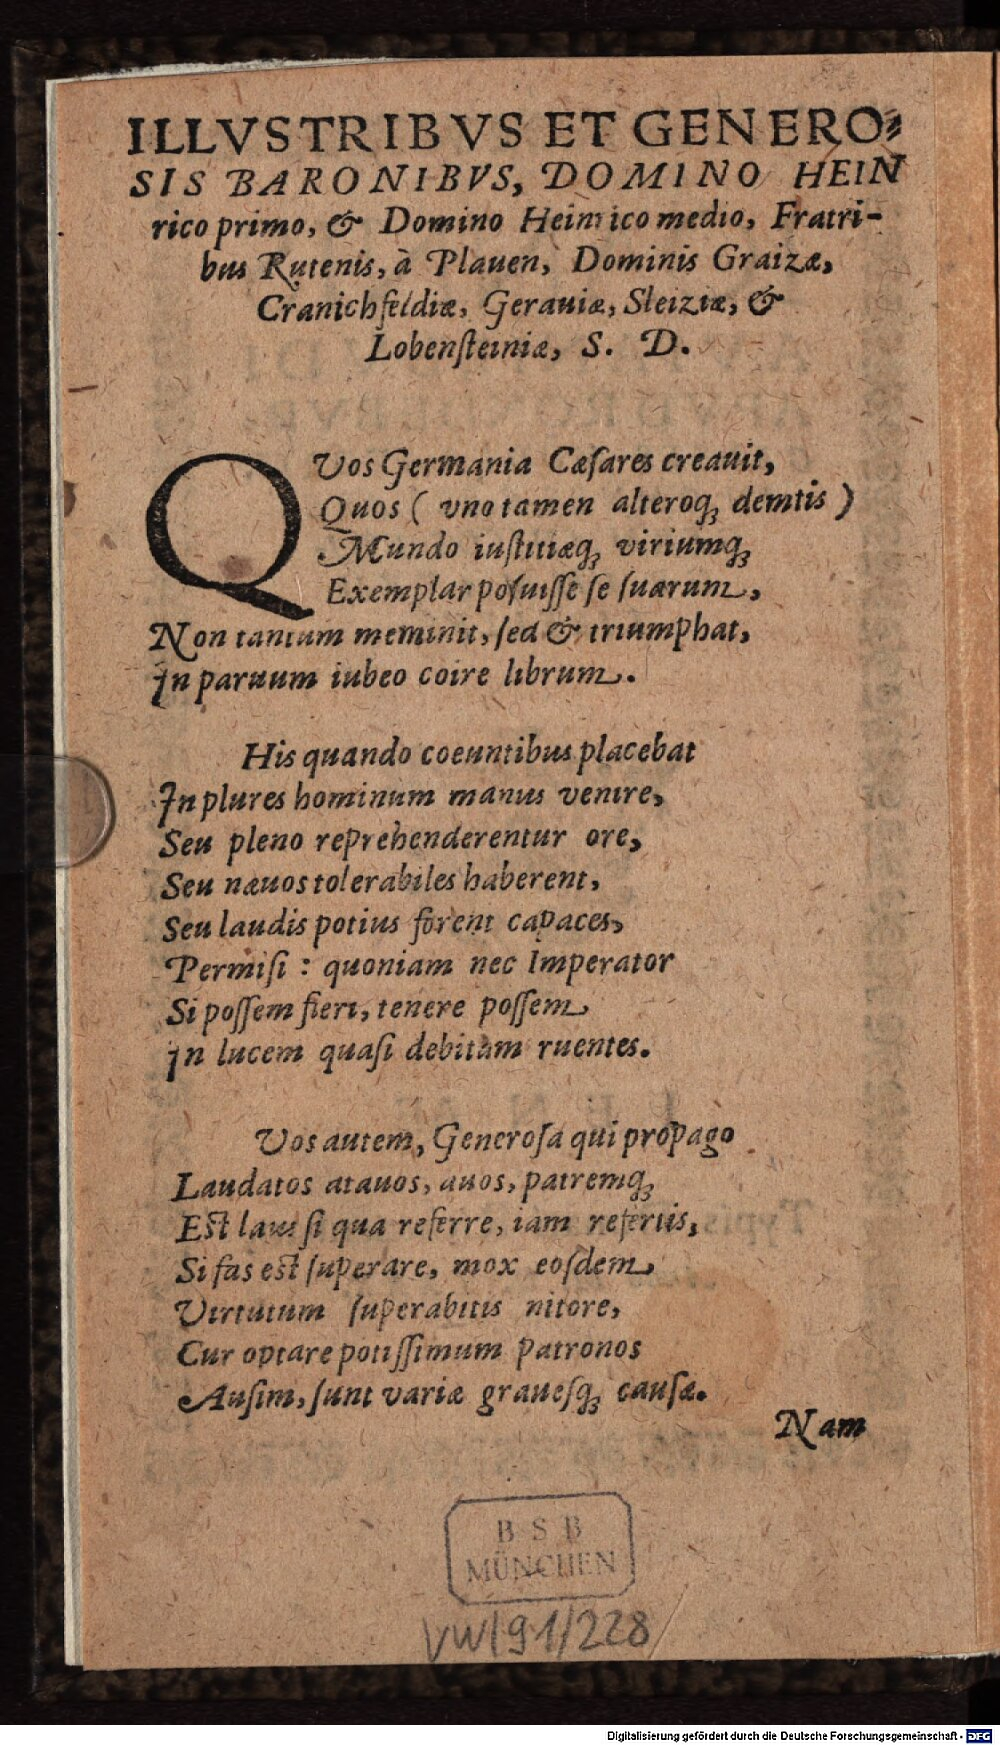 ILLVSTRIBVS ET GENERO⸗
SIS BARONIBVS, DOMINO HEIN
rico primo, & Domino Heinrico medio, Fratri-
bus Rutenis, à Plauen, Dominis Graizæ,
Cranichfeldiæ, Gerauiæ, Sleiziæ, &
Lobenſteiniæ, S. D.
QVos Germania Cæſares creauit,
Quos ( vno tamen alteroq́ꝫ demtis )
Mundo iuſtitiæq́ꝫ viriumq́ꝫ
Exemplar poſuiſſe ſe ſuarum,
Non tantum meminit, ſed & triumphat,
In paruum iubeo coire librum.
His quando coeuntibus placebat
In plures hominum manus venire,
Seu pleno reprehenderentur ore,
Seu næuos tolerabiles haberent,
Seu laudis potius forent capaces,
Permiſi : quoniam nec Imperator
Si poſſem fieri, tenere poſſem
In lucem quaſi debitam ruentes.
Vos autem, Generoſa qui propago
Laudatos atauos, auos, patremq́ꝫ
Eſt laus ſi qua referre, iam refertis,
Si fas eſt ſuperare, mox eoſdem
Virtutum ſuperabitis nitore,
Cur optare potiſſimum patronos
Auſim, ſunt variæ graueſq́ꝫ cauſæ.
Nam
B S B
MÜNCHEN
VW/91/228
Digitalisierung gefördert durch die Deutsche Forschungsgemeinschaft - DFG